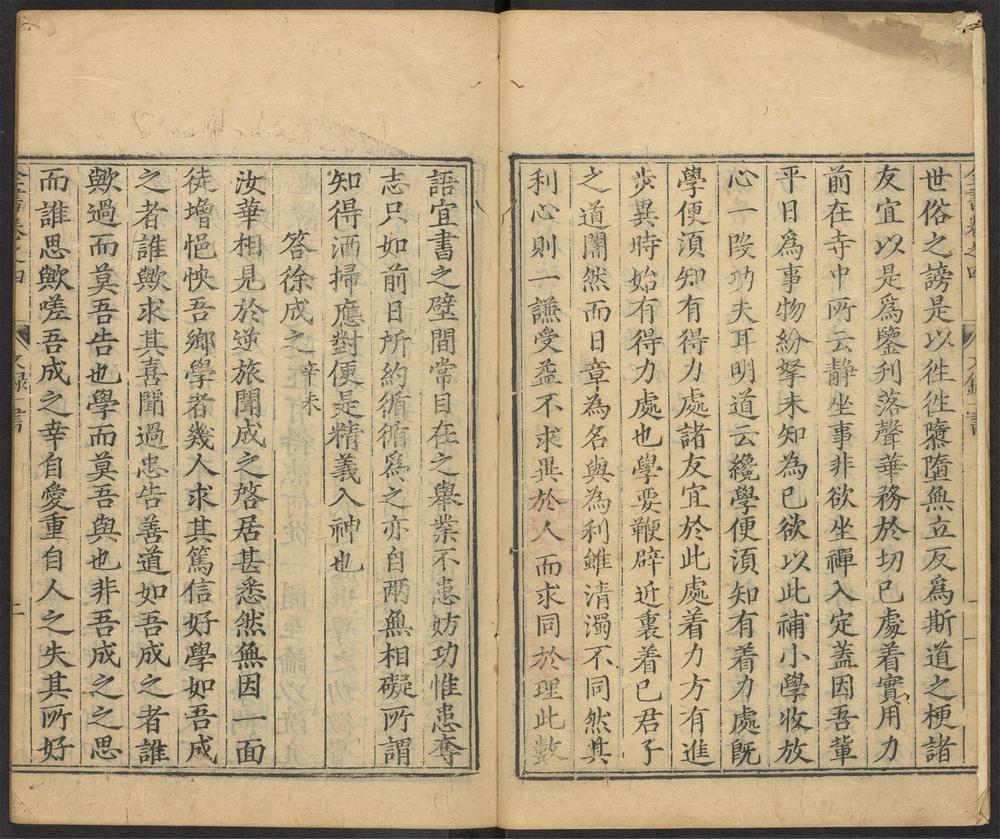 世俗之謗是以徃徃隳墮無立反爲斯道之梗諸
友宜以是爲鑒刋落聲華務於切已處着實用力
前在寺中所云静坐事非欲坐禪入定葢因吾軰
平日爲事物紛拏未知為已欲以此補小學收放
心一叚功夫耳明道云纔學便湏知有着力處旣
學便湏知有得力處諸友宜於此處着力方有進
步異時始有得力處也學要鞭辟近裏着已君子
之道闇然而日章為名與為利雖清濁不同然其
利心則一謙受益不求異於人而求同於理此數
語宜書之壁間常目在之舉業不患妨功惟患奪
志只如前日所約循循爲之亦自兩無相礙所謂
知得洒掃應對便是精義入神也
答徐成之 辛未
汝華相見於逆旅聞成之啓居甚悉然無因一面
徒增悒怏吾鄉學者幾人求其篤信好學如吾成
之者誰歟求其喜聞過忠告善道如吾成之者誰
歟過而莫吾告也學而莫吾與也非吾成之之思
而誰思歟嗟吾成之幸自愛重自人之失其所好
全書卷之四 文録一書 二